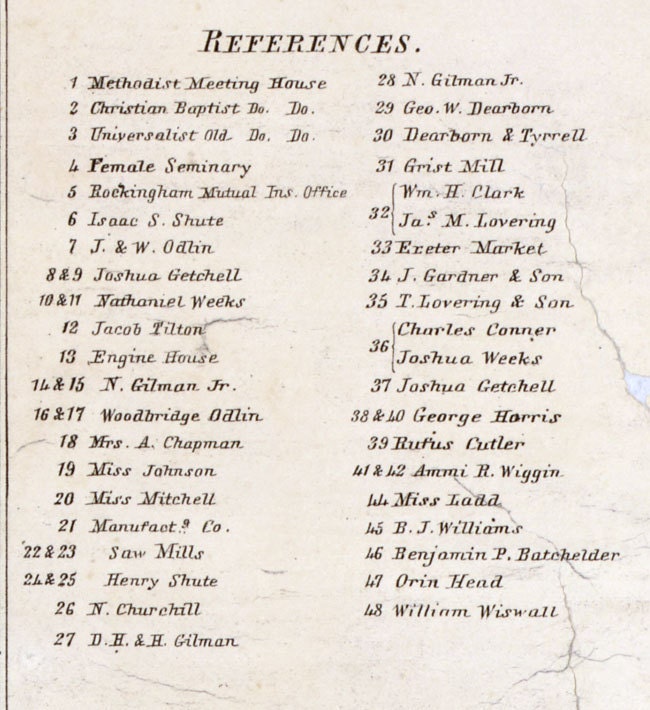 REFERENCES.
1 Methodist Meeting House
2 Christian Baptist Do. Do.
3 Universalist Old Do. Do.
4 Female Seminary
5 Rockingham Mutual Ins. Office
6 Isaac S. Shute
7 J. & W. Odlin
8 & 9 Joshua Getchell
10 & 11 Nathaniel Weeks
12 Jacob Tilton
13 Engine House
14 & 15 N. Gilman Jr.
16 & 17 Woodbridge Odlin
18 Mrs. A. Chapman
19 Miss Johnson
20 Miss Mitchell
21 Manufact.g Co.
22 & 23 Saw Mills
24 & 25 Henry Shute
26 N. Churchill
27 D.H. & H. Gilman
28 N. Gilman Jr.
29 Geo. W. Dearborn
30 Dearborn & Tyrrell
31 Grist Mill
32 { Wm. H. Clark
Jas. M. Lovering
33 Exeter Market
34 J. Gardner & Son
35 T. Lovering & Son
36 { Charles Conner
Joshua Weeks
37 Joshua Getchell
38 & 40 George Harris
39 Rufus Cutler
41 & 42 Ammi R. Wiggin
44 Miss Ladd
45 B. J. Williams
46 Benjamin P. Batchelder
47 Orin Head
48 William Wiswall